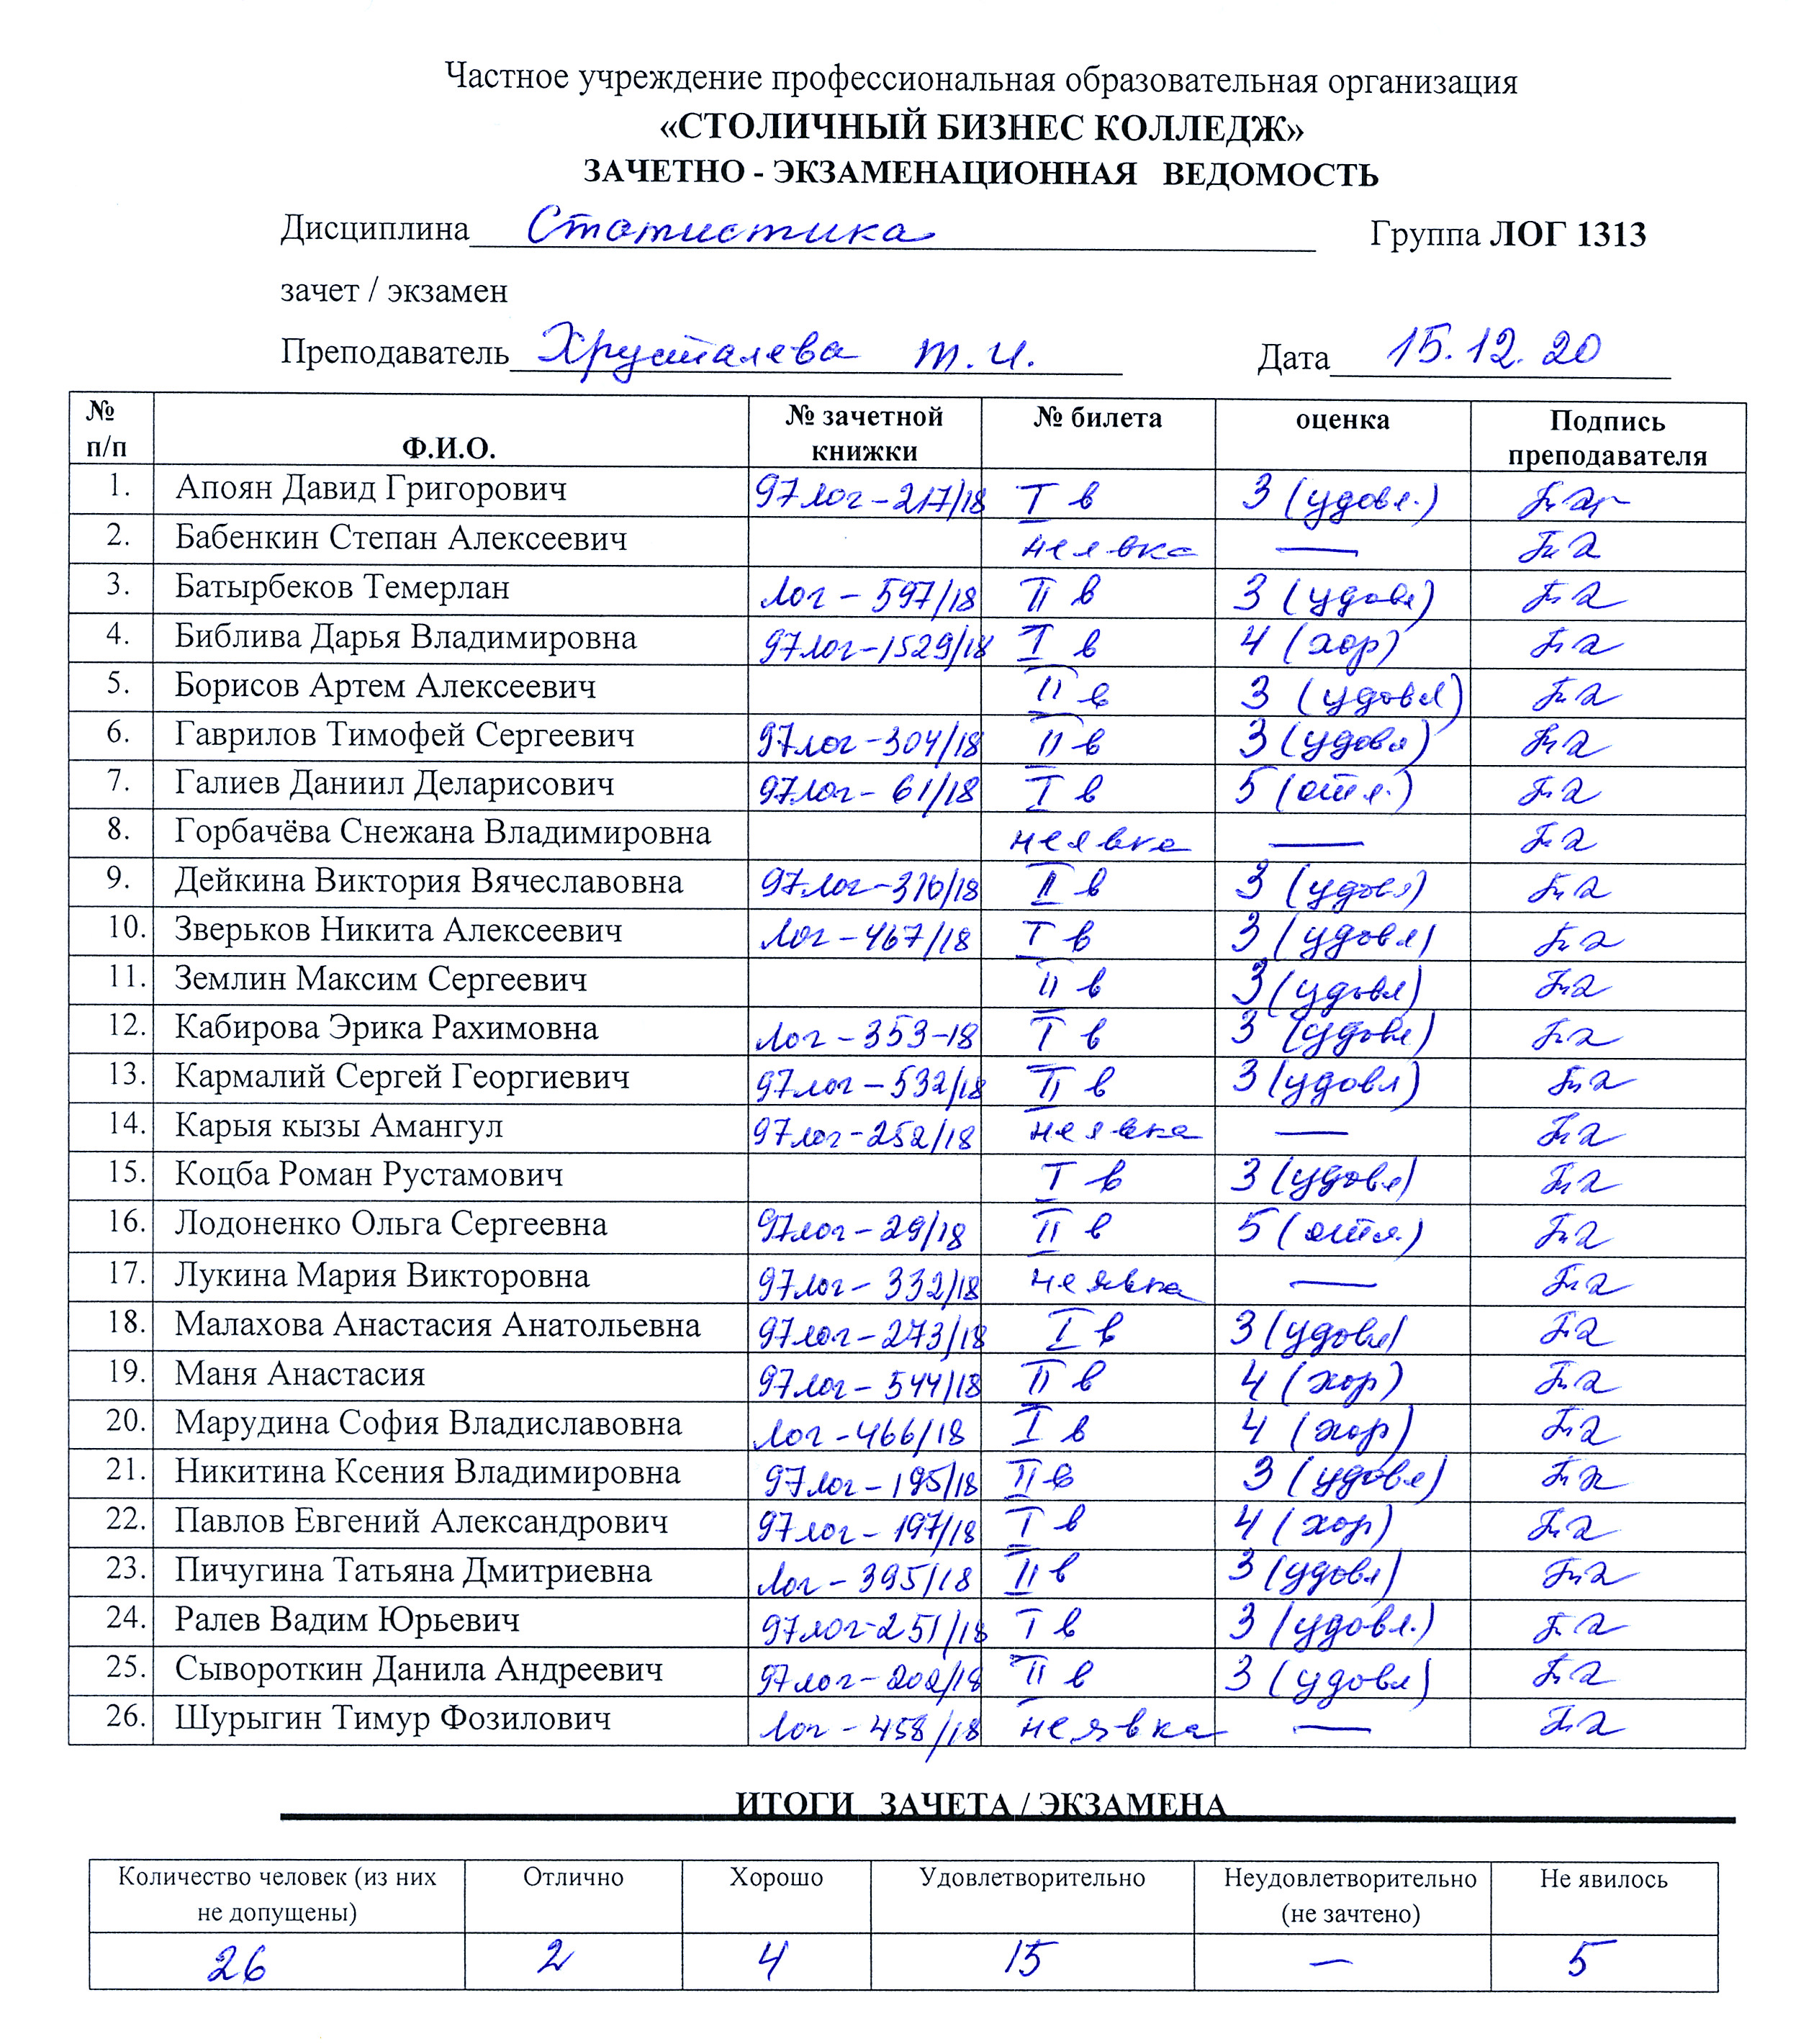 Частное учреждение профессиональная образовательная организация
«СТОЛИЧНЫЙ БИЗНЕС КОЛЛЕДЖ»
ЗАЧЕТНО - ЭКЗАМЕНАЦИОННАЯ ВЕДОМОСТЬ
Дисциплина Статистика Группа ЛОГ 1313
зачет / экзамен
Преподаватель Хрусталева Т.И. Дата 15.12.20
№ п/п Ф.И.О. № зачетной книжки № билета оценка Подпись преподавателя
1. Апоян Давид Григорович 97лог-217/18 I в 3 (удовл.)
2. Бабенкин Степан Алексеевич неявка —
3. Батырбеков Темерлан Лог-597/18 II в 3 (удовл)
4. Библива Дарья Владимировна 97лог-1529/18 I в 4 (хор)
5. Борисов Артем Алексеевич II в 3 (удовл)
6. Гаврилов Тимофей Сергеевич 97лог-304/18 II в 3 (удовл)
7. Галиев Даниил Деларисович 97лог-61/18 I в 5 (отл.)
8. Горбачёва Снежана Владимировна неявка —
9. Дейкина Виктория Вячеславовна 97лог-310/18 II в 3 (удовл)
10. Зверьков Никита Алексеевич Лог-467/18 I в 3 (удовл)
11. Землин Максим Сергеевич II в 3 (удовл)
12. Кабирова Эрика Рахимовна Лог-353-18 I в 3 (удовл)
13. Кармалий Сергей Георгиевич 97лог-532/18 II в 3 (удовл)
14. Карыя кызы Амангул 97лог-252/18 неявка —
15. Коцба Роман Рустамович I в 3 (удовл)
16. Лодоненко Ольга Сергеевна 97лог-29/18 II в 5 (отл.)
17. Лукина Мария Викторовна 97лог-332/18 неявка —
18. Малахова Анастасия Анатольевна 97лог-273/18 I в 3 (удовл)
19. Маня Анастасия 97лог-544/18 II в 4 (хор)
20. Марудина София Владиславовна Лог-466/18 I в 4 (хор)
21. Никитина Ксения Владимировна 97лог-195/18 II в 3 (удовл)
22. Павлов Евгений Александрович 97лог-197/18 I в 4 (хор)
23. Пичугина Татьяна Дмитриевна Лог-395/18 II в 3 (удовл)
24. Ралев Вадим Юрьевич 97лог-251/18 I в 3 (удовл.)
25. Сывороткин Данила Андреевич 97лог-202/18 II в 3 (удовл)
26. Шурыгин Тимур Фозилович Лог-458/18 неявка —
ИТОГИ ЗАЧЕТА / ЭКЗАМЕНА
Количество человек (из них не допущены) Отлично Хорошо Удовлетворительно Неудовлетворительно (не зачтено) Не явилось
26 2 4 15 — 5